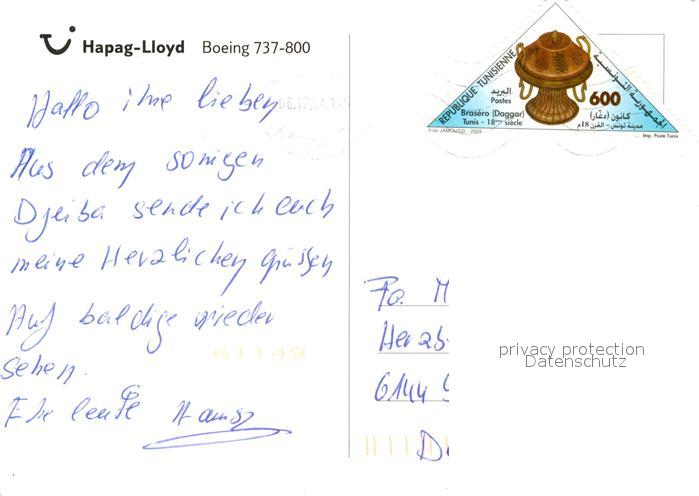 Hapag-Lloyd Boeing 737-800
Hallo ihr lieben
Aus dem sonigen
Djeiba sende ich euch
meine Herzlichen Grüssen
Auf baldige wieder
sehen.
61149
REPUBLIQUE TUNISIENNE
الجمهورية التونسية
البريد
Postes
600
Braséro (Daggar)
Tunis - 18ème siècle
كانون (دڨار)
مدينة تونس - القرن 18م
Yosr JAMOUSSI - 2004
Imp. Poste Tunis
Fa. M
Herzb
6144
privacy protection
Datenschutz